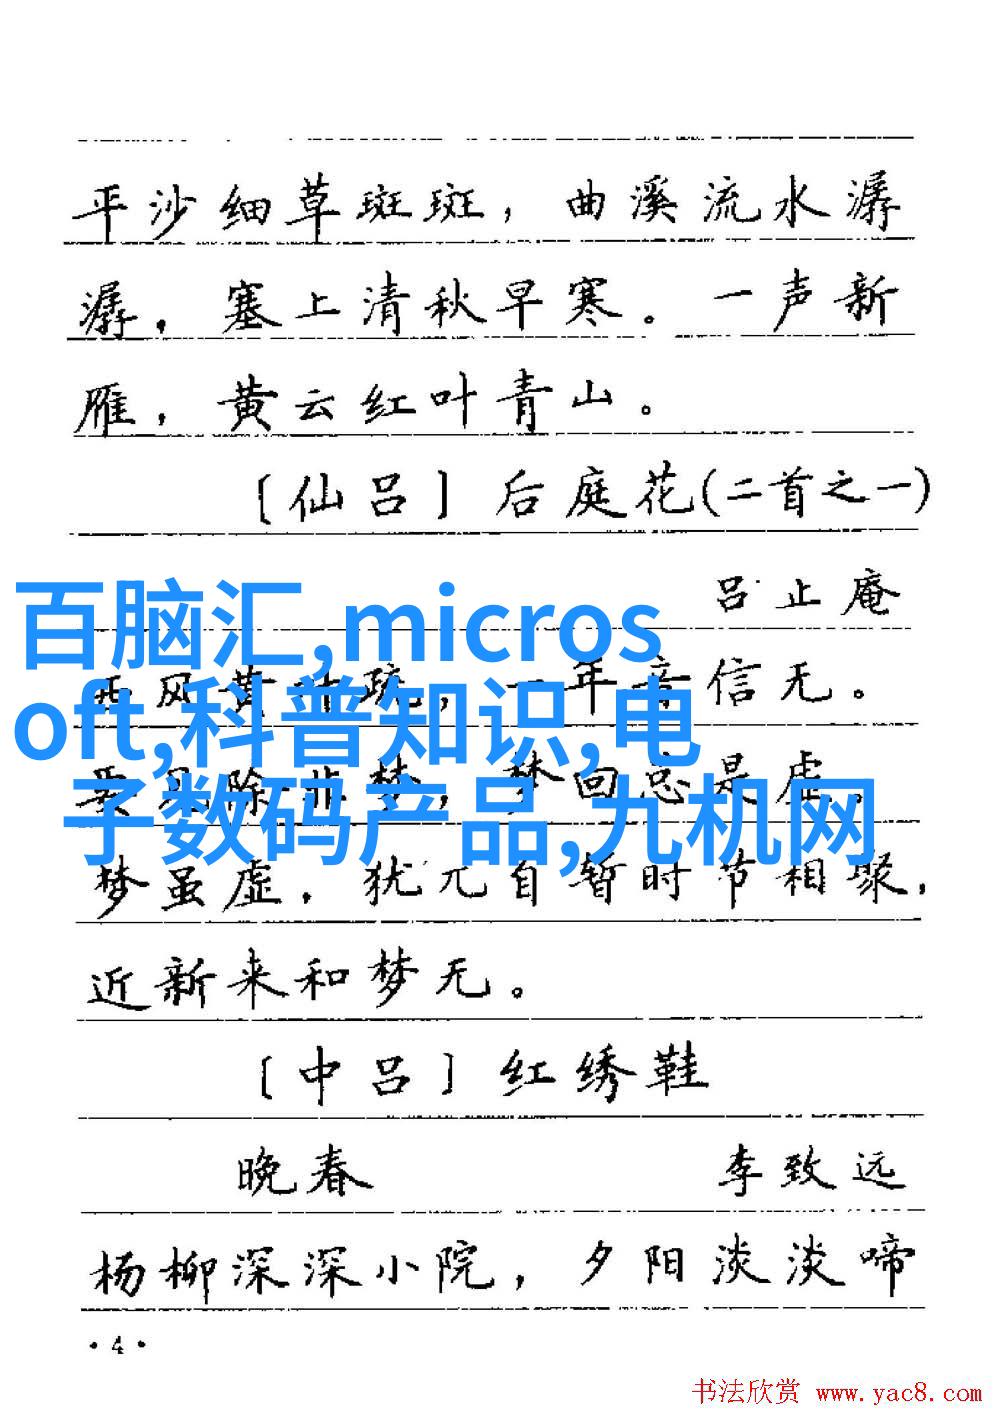 平沙细草斑斑，曲溪流水潺
潺，塞上清秋早寒。一声新
雁，黄云红叶青山。
〔仙吕〕后庭花(二首之一)
吕止庵
百脑汇,micros
风黄 ，一年音信无。
oft,科普知识,电
除非梦，梦回总是虚。
子数码产品,九机网
梦虽虚，犹兀自暂时节相聚，
近新来和梦无。
〔中吕〕红绣鞋
晚春 李致远
杨柳深深小院，夕阳淡淡啼
·4·
书法欣赏 www.yac8.com